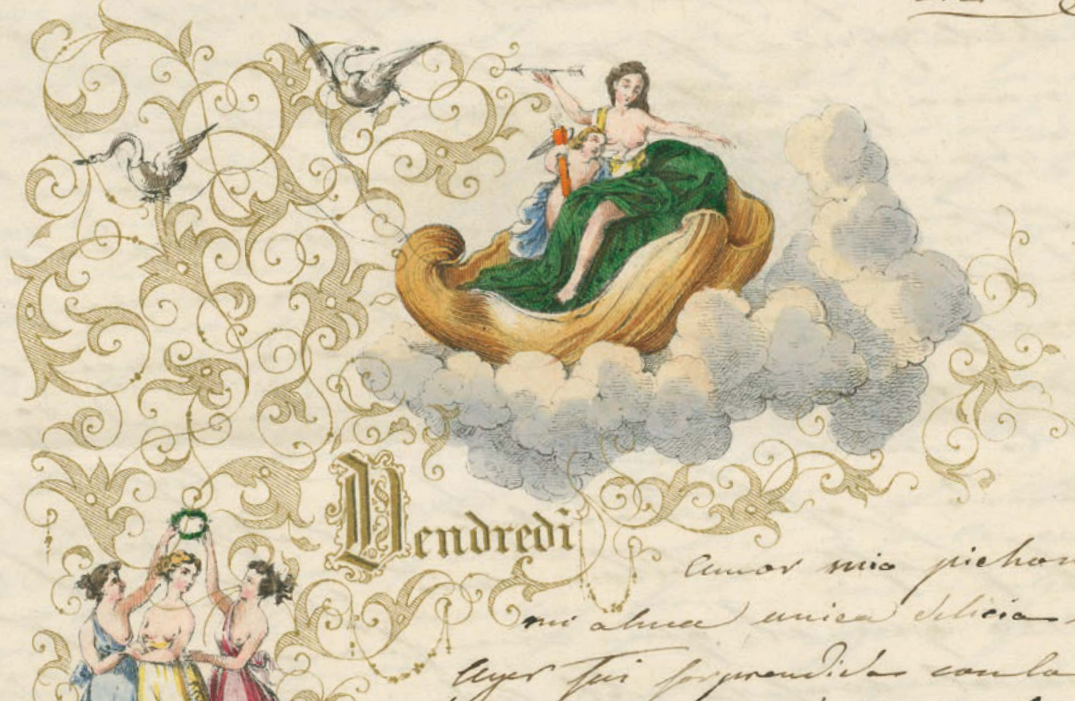 Vendredi
Amor mio pichon
mi alma unica delicia
Ayer fui sorprendida con la